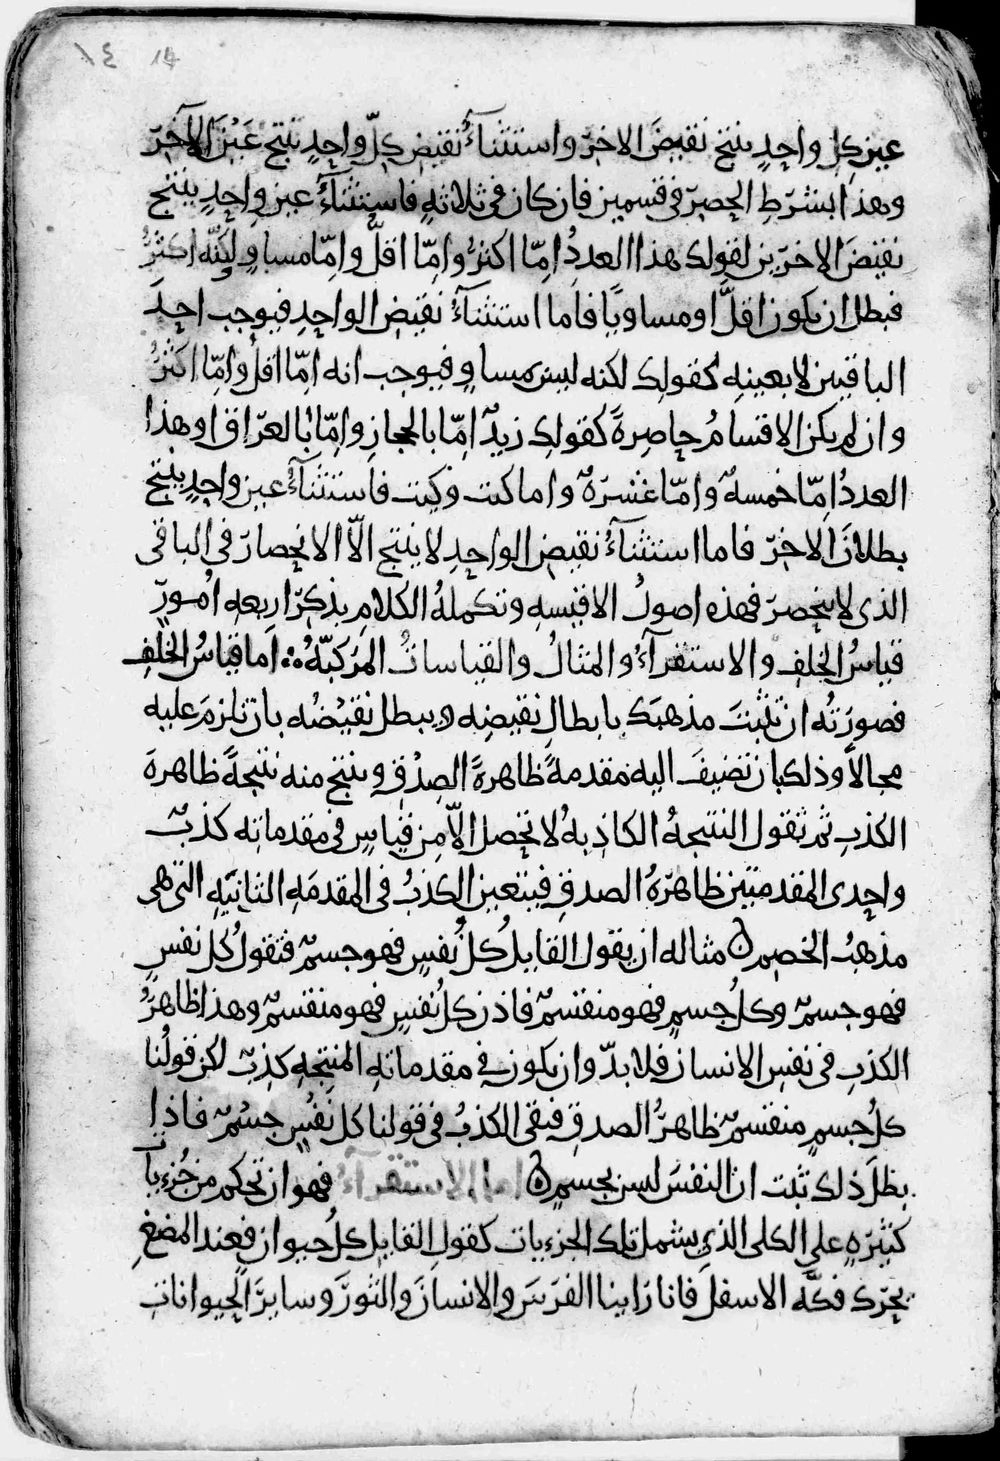 ١٤ 14
عين كل واحدٍ ينتج نقيضَ الاخرّ واستثناءُ نقيض كلّ واحدٍ ينتج عَيْنَ الآخرّ
وهذا بشرّطِ الحصرّ في قسمين فان كان في ثلاثهٍ فاستثناءُ عين واحدٍ ينتج
نقيضَ الاخرّين لقولك هذا العددُ امّا اكثرُ وامّا اقلّ وامّا مساوٍ لكنّه اكثرُ
فبطل ان يكون اقلَّ او مساويًا فاما استثناءُ نقيض الواحدِ فيوجب احدَ
الباقيين لا بعينه كقولك لكنه ليس مساوٍ فيوجب انه امّا اقلُ وامّا اكثرُ
وان لم يكن الاقسامُ حاصرةً كقولك زيدٌ امّا بالحجازِ وامّا بالعرّاق او هذا
العددُ امّا خمسهٌ وامّا عشرّةٌ واما كيت وكيت فاستثناءُ عين واحدٍ ينتج
بطلانَ الاخرّ فاما استثناءُ نقيضِ الواحدِ لا ينتج الّا الانحصارّ في الباقى
الذى لا ينحصرّ فهذه اصولُ الاقيسه وتكملةُ الكلامِ بذكرّ اربعه اُمورّ
قياسُ الخلف والاستقرآءُ والمثالُ والقياساتُ المرّكبّهُ ؞ اما قياسُ الخلف
فصورَتُه ان تثبتَ مذهبَك بابطالِ نقيضِه ويبطل نقيضُه بان تلزمَ عليه
محالاً وذلك بان تضيفَ اليه مقدمةً ظاهرةَ الصِدْقِ وينتج منه نتيجةً ظاهرةَ
الكذبِ ثم تقول النتيجهُ الكاذبهُ لا تحصل الّا مِن قياسٍ فى مقدماته كذبٌ
واحدى المقدمتين ظاهرّهُ الصدقِ فيتعين الكذبُ فى المقدمَهِ الثانيّهِ التى هى
مذهبُ الخصمِ ن مثاله ان يقول القايلُ كلُ نفسٍ فهو جسمٌ فتقولُ كل نفسٍ
فهو جسمٌ وكلُ جسمٍ فهو منقسمٌ فاذن كلُ نفسٍ فهو منقسمٌ وهذا ظاهرُ
الكذبِ فى نفسِ الانسان فلا بدّ وان يكون فى مقدماتهِ المنتجهِ كذبٌ لكن قولُنا
كلُ جسمٍ منقسمٌ ظاهرُ الصدقِ فبقى الكذبُ فى قولنا كل نَفْسٍ جسْمٌ فاذا
بطلَ ذلك ثبت ان النفسَ ليس بجسمٍ ن اما الاستقرآءُ فهو ان تحكم من جُزءيات
كثيرّهٍ على الكلى الذى يشمل تلك الجزءيات كقولِ القايلِ كلُ حيوانٍ فعند المضغِ
يحرّك فكّه الاسفلَ فانا رَاينا الفرَسَ والانسانَ والثورَ وسايرَ الحيوانات